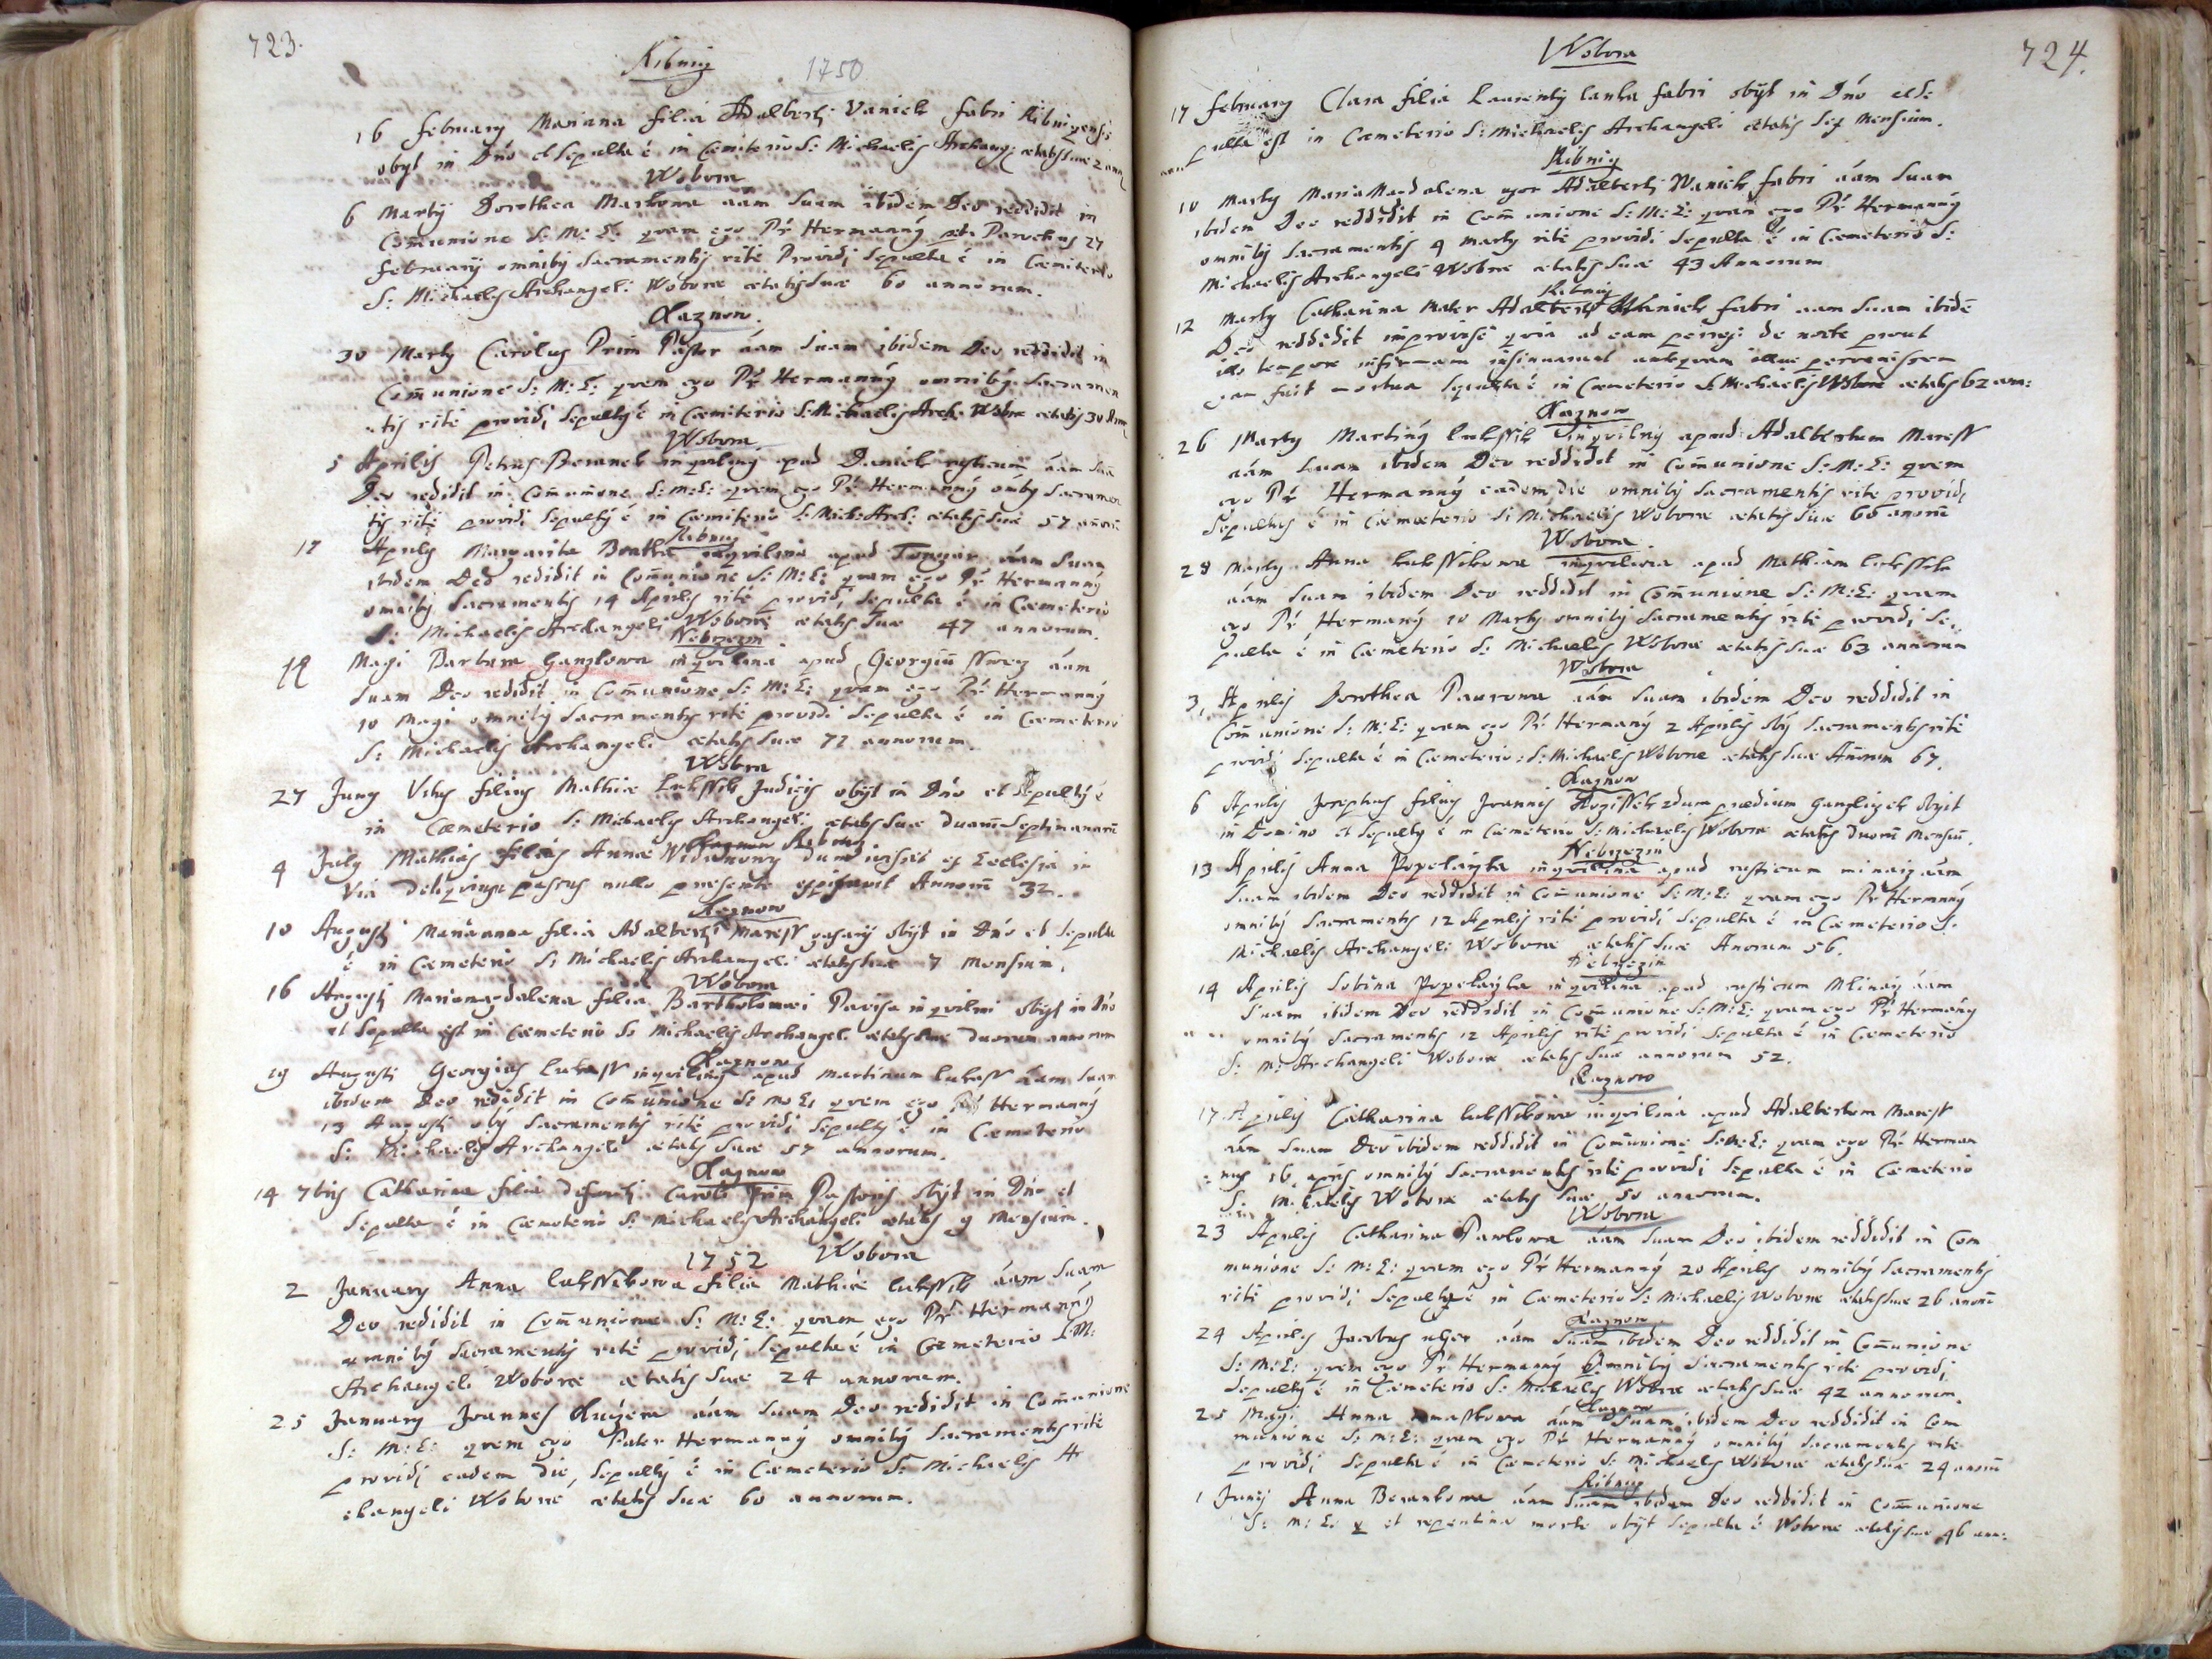 723.
Ribnig 1750
16 February Mariana filia Adalberti Vaniek fabri Ribnigensis
obyt in Dno et Sepulta ē in Cæmiterio S: Michaelis Archang: ætatis suæ 2 ann
Wobora
6 Marty Dorothea Markowa aām Suam ibidem Deo reddidit in
Comunione S: M: E: quam ego Pr Hermanny Parochus 27
february omniby Sacramentis ritè Providi, Sepulta ē in Cæmiterio
S: Michaelis Archangeli Woboræ ætatis Suæ 60 annorum.
Kaznow.
30 Marty Carolus Prim Pastor aām Suam ibidem Deo reddidit in
Comunione S: M: E: quem ego Pr Hermanny omniby Sacramen
tis ritè providi, Sepulty ē in Cæmiterio S: Michaelis Arch: Wobore ætatis 30
Wobora
5 Aprilis Petrus Beranek inquiliny apud Daniek rusticum aām Suā
Deo redidit in Comunione S: M: E: quem ego Pr Hermanny omby Sacramen
tis ritè providi Sepulty ē in Cæmiterio S: Mich: Arch: ætatis Suæ 57 anoru
Ribnig
17 Aprilis Margarita inquilina apud aām Suam
ibidem Deo redidit in Comunione S: M: E: quam ego Pr Hermanny
omniby Sacramentis 14 Aprilis ritè providi, Sepulta ē in Cæmeterio
S: Michaelis Archangeli Woboræ ætatis Suæ 47 annorum.
Nebrzezin
Magi Barbara Ganzlowa inquilina apud Georgiū aām
Suam Deo redidit in Comunione S: M: E: quam ego Pr Hermanny
10 Magi omniby Sacramentis ritè providi Sepulta ē in Cæmeterio
S: Michaelis Archangeli ætatis Suæ 72 annorum.
Wobora
27 Juny Vitus filius Mathiæ LukNek Judicis obyt in Dno et Sepulty ē
in Cæmeterio S: Michaelis Archangeli ætatis Suæ duarū Septimanarū
Ribnig
4 July Mathias filius Annæ dum ivisset ex Ecclesia in
Via deliquium passus nullo præsente expiravit Annorū 32.
Kaznow
10 Augusti Mariana filia Adalberti MaresN obyt in Dno et Sepulta
ē in Cæmeterio S: Michaelis Archangeli ætatis Suæ 7 Mensium.
Wobora
16 Augusti Mariamagdalena filia Bartholomæi inquilini obyt in Dno
et Sepulta est in Cæmeterio S: Michaelis Archangeli ætatis Suæ duorum annorum
Kaznow
19 Augusti Georgius LukasN inquiliny apud Martinum LukasN aām Suam
ibidem Deo redidit in Comunione S: M: E: quem ego Pr Hermanny
Augusti oby Sacramentis ritè providi, Sepulty ē in Cæmeterio
S: Michaelis Archangeli ætatis Suæ 57 annorum.
Kaznow
14 7bris Catharina filia defuncti Caroli Prim Pastoris obyt in Dno et
Sepulta ē in Cæmeterio S: Michaelis Archangeli ætatis 9 Mensium.
1752 Wobora
2 January Anna LukNikowa filia Mathiæ LukNik aām Suam
Deo redidit in Comunione S: M: E: quam ego Pr Hermanny
omniby Sacramentis ritè providi, Sepulta ē in Cæmeterio S: M:
Archangeli Woboræ ætatis Suæ 24 annorum.
25 January Joannes aām Suam Deo redidit in Comunione
S: M: E: quem ego Pater Hermanny omniby Sacramentis ritè
providi eadem die, Sepulty ē in Cæmeterio S: Michaelis Ar
changeli Woboræ ætatis Suæ 60 annorum.
Wobora
724.
17 february Clara filia Laurenty Lanka fabri obyt in Dno et Se:
pulta est in Cæmeterio S: Michaelis Archangeli ætatis Sex Mensium.
Ribnig
10 Marty Maria Magdalena uxor Adalberti Waniek fabri aām Suam
ibidem Deo reddidit in Comunione S: M: E: quam ego Pr Hermanny
omniby Sacramentis 9 Marty ritè providi Sepulta ē in Cæmeterio S:
Michaelis Archangeli Woboræ ætatis Suæ 43 Annorum
Ribnig
12 Marty Catharina Mater Adalberti Waniek fabri aam Suam ibidē
Deo reddidit improvisè quia ad eam perrexi de nocte prout
illo tempore infirmam insinuarunt antequam illuc pervenissem
jam fuit mortua Sepulta ē in Cæmeterio S: Michaelis Woboræ ætatis 62 ann:
Kaznow
26 Marty Martiny LukNik inquiliny apud Adalbertum MaresN
aām Suam ibidem Deo reddidit in Comunione S: M: E: quem
ego Pr Hermanny eadem die omniby Sacramentis rite providi,
Sepultus ē in Cæmeterio S: Michaelis Woboræ ætatis Suæ 66 anorū
Wobora
28 Marty Anna LukNikowa inquilina apud Mathiam LukNik
aām Suam ibidem Deo reddidit in Comunione S: M: E: quam
ego Pr Hermany 20 Marty omniby Sacramentis ritè providi Se:
pulta ē in Cæmeterio S: Michaelis Woboræ ætatis Suæ 63 annorum
Wobora
3 Aprilis Dorothea Paurowa aām Suam ibidem Deo reddidit in
Comunione S: M: E: quam ego Pr Hermany 2 Aprilis oby Sacramentis ritè
providi Sepulta ē in Cæmeterio S: Michaelis Woboræ ætatis Suæ Anorum 67.
Kaznow
6 Aprilis Josephus filius Joannis obyt
in Domino et Sepulty ē in Cæmeterio S: Michaelis Woboræ ætatis duorū Mensiū.
Nebrzezin
13 Aprilis Anna Popelayka inquilina apud rusticum aām
Suam ibidem Deo reddidit in Comunione S: M: E: quam ego Pr Hermany
omniby Sacramentis 12 Aprilis ritè providi, Sepulta ē in Cæmeterio S.
Michaelis Archangeli Woboræ ætatis Suæ Anorum 56.
Nebrzezin
14 Aprilis Sobina Popelayka inquilina apud rusticum Mlinarz aām
Suam ibidem Deo reddidit in Comunione S: M: E: quam ego Pr Hermany
omniby Sacramentis 12 Aprilis ritè providi Sepulta ē in Cæmeterio
S: M: Archangeli Woboræ ætatis Suæ annorum 52.
Kaznow
17 Aprilis Catharina LukNikowa inquilina apud Adalbertum MaresN
aām Suam Deo ibidem reddidit in Comunione S: M: E: quam ego Pr Herman
nus 16 apris omniby Sacramentis ritè providi Sepulta ē in Cæmeterio
S: Michaelis Woboræ ætatis Suæ 50 annorum.
Wobora
23 Aprilis Catharina Pawlowa aām Suam Deo ibidem reddidit in Com
munione S: M: E: quam ego Pr Hermanny 20 Aprilis omniby Sacramentis
ritè providi, Sepulta ē in Cæmeterio S: Michaelis Woboræ ætatis Suæ 26 anorū
Kaznow
24 Aprilis Jacobus aām Suam ibidem Deo reddidit in Comunione
S: M: E: quem ego Pr Hermanny Omniby Sacramentis rite providi,
Sepulty ē in Cæmeterio S: Michaelis Woboræ ætatis Suæ 42 annorum.
Kaznow
25 Magi Anna aām Suam ibidem Deo reddidit in Com
munione S: M: E: quam ego Pr Hermanny omniby Sacramentis rite
providi, Sepulta ē in Cæmeterio S: Michaelis Woboræ ætatis Suæ 24 anorū
Ribnig
1 Junij Anna Berankowa aam Suam ibidem Deo reddidit in Comunione
S: M: E: et repentina morte obyt Sepulta ē Woboræ ætatis Suæ 46 ann: